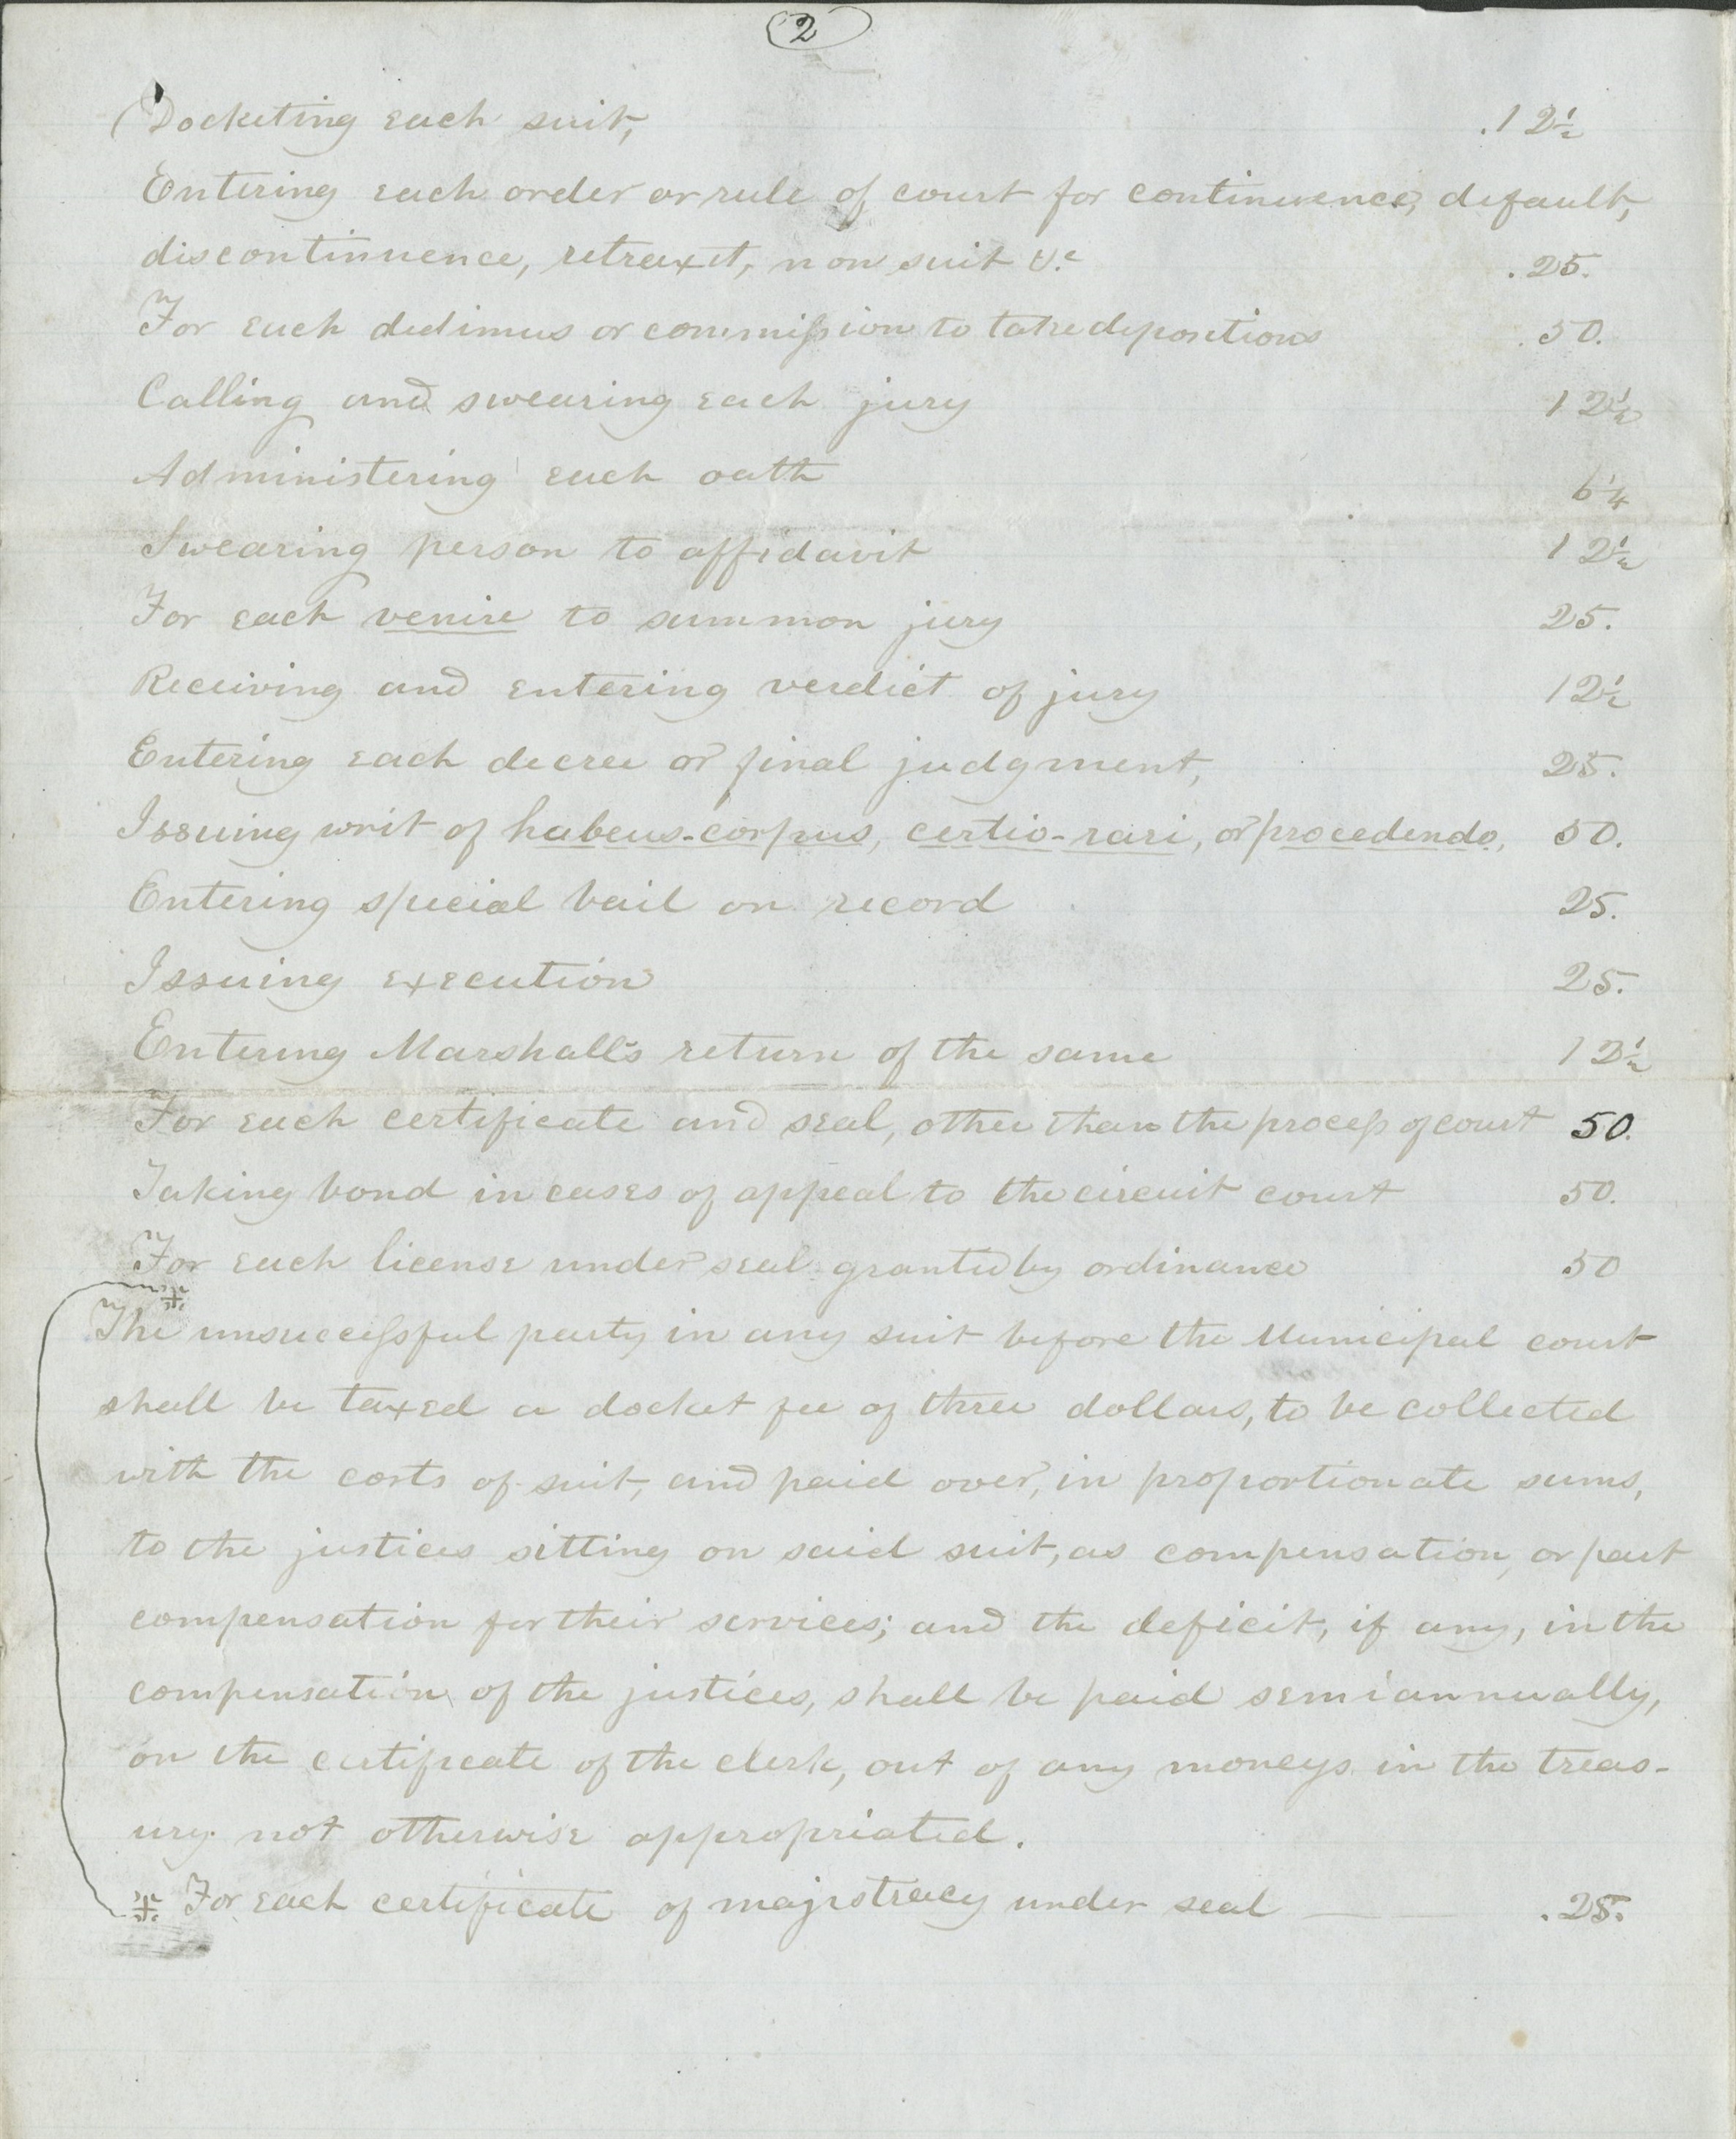 2
Docketing each suit, .12½
Entering each order or rule of court for continuence, default,
discontinuence, retraxit, non suit &c .25.
For each dedimus or commission to take depositions .50.
Calling and swearing each jury 12½
Administering each oath 6¼
Swearing person to affidavit 12½
For each venire to summon jury 25.
Receiving and entering verdict of jury 12½
Entering each decree or final judgment, 25.
Issuing writ of habeus-corpus, certio-rari, or procedendo, 50.
Entering special bail on record 25.
Issuing execution 25.
Entering Marshall's return of the same 12½
For each certificate and seal, other than the process of court 50.
Taking bond in cases of appeal to the circuit court 50.
For each license under seal granted by ordinance 50
※
The unsuccessful party in any suit before the Municipal court
shall be taxed a docket fee of three dollars, to be collected
with the costs of suit, and paid over, in proportionate sums,
to the justices sitting on said suit, as compensation, or part
compensation for their services; and the deficit, if any, in the
compensation of the justices, shall be paid semiannually,
on the certificate of the clerk, out of any moneys in the treas-
ury not otherwise appropriated.
※ For each certificate of majistracy under seal — .25.